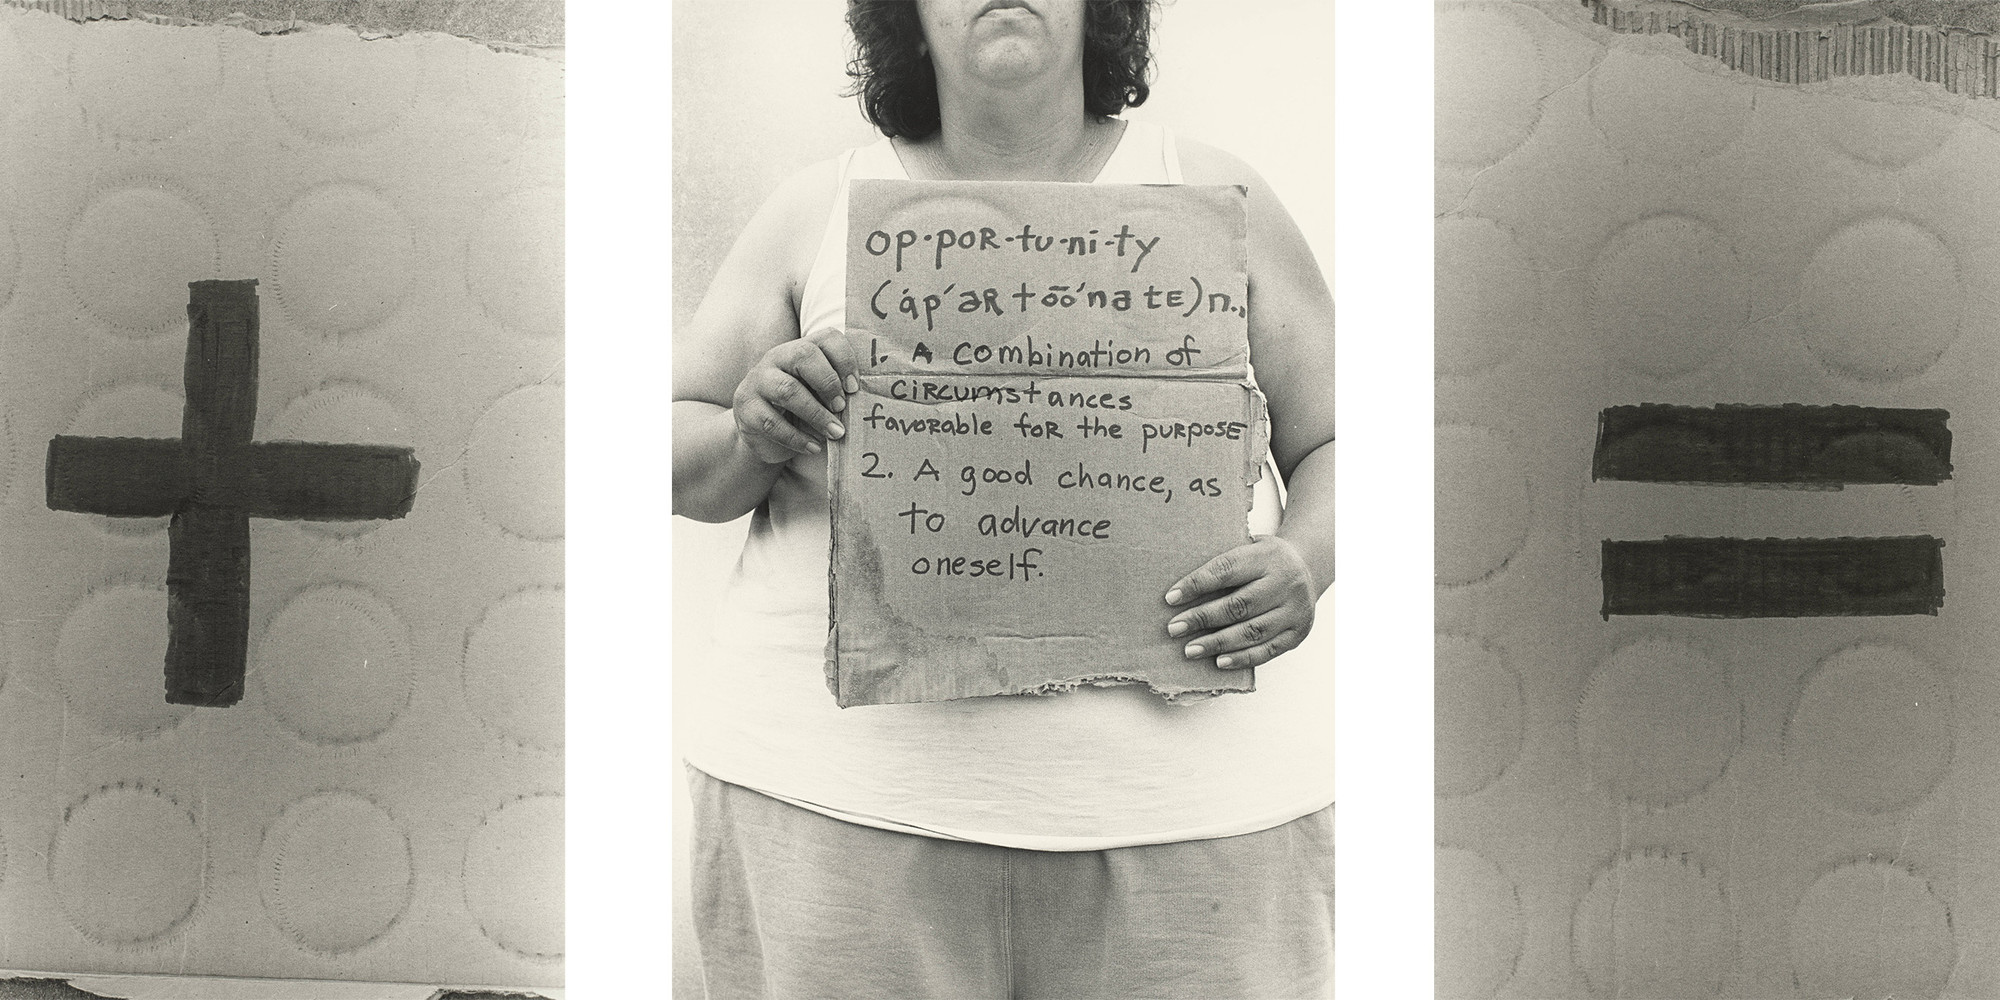 +
op·poR-tu·ni-ty
(áp´əR tōō´nə tE) n.,
1. A combination of
ciRcumstances
favoRable foR the puRposE
2. A good chance, as
to advance
oneself.
=